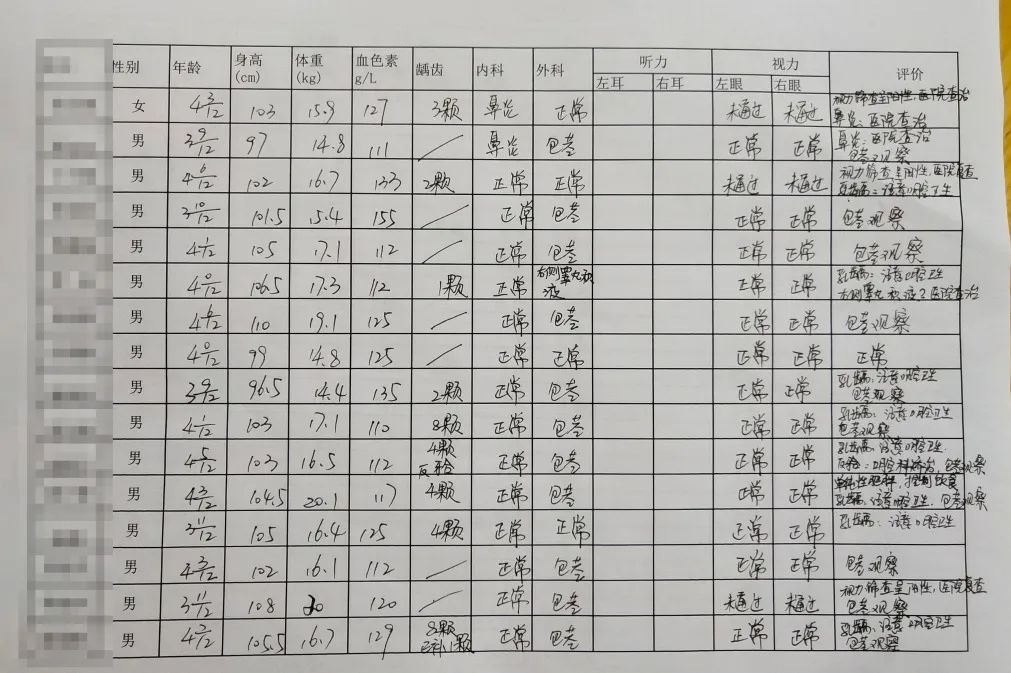 性别 年龄 身高(cm) 体重(kg) 血色素g/L 龋齿 内科 外科 听力 视力 评价
左耳 右耳 左眼 右眼
女 4 3/12 103 15.9 127 3颗 鼻炎 正常 未通过 未通过 视力筛查呈阳性,医院查治
鼻炎:医院查治
男 3 9/12 97 14.8 111 / 鼻炎 包茎 正常 正常 鼻炎:医院查治
包茎观察
男 4 6/12 102 16.7 133 2颗 正常 正常 未通过 未通过 视力筛查呈阳性,医院复查
乳龋齿:注意口腔卫生
男 3 10/12 101.5 15.4 155 / 正常 包茎 正常 正常 包茎观察
男 4 1/12 105 17.1 112 / 正常 包茎 正常 正常 包茎观察
男 4 0/12 106.5 17.3 112 1颗 正常 右侧睾丸积液 正常 正常 乳龋:注意口腔卫生
右侧睾丸积液:医院查治
男 110 19.1 125 / 正常 包茎 正常 正常 包茎观察
男 4 0/12 99 14.8 125 / 正常 正常 正常 正常 正常
男 3 9/12 96.5 14.4 135 2颗 正常 包茎 正常 正常 乳龋:注意口腔卫生
包茎观察
男 4 1/12 103 17.1 110 8颗 正常 包茎 正常 正常 乳龋:注意口腔卫生
包茎观察
男 4 5/12 103 16.5 112 4颗 反𬌗 正常 包茎 正常 正常 乳龋:注意口腔卫生.
口腔科矫治,包茎观察
男 4 3/12 104.5 20.1 117 4颗 正常 包茎 正常 正常 单纯性肥胖,控制饮食
乳龋:注意口腔卫生,包茎观察
男 3 11/12 105 16.4 125 4颗 正常 正常 正常 正常 乳龋:注意口腔卫生
男 4 3/12 102 16.1 112 / 正常 包茎 正常 正常 包茎观察
男 3 11/12 108 20 120 / 正常 包茎 未通过 未通过 视力筛查呈阳性,医院复查
包茎观察
男 4 3/12 105.5 16.7 129 8颗 已补1颗 正常 包茎 正常 正常 乳龋:注意口腔卫生
包茎观察